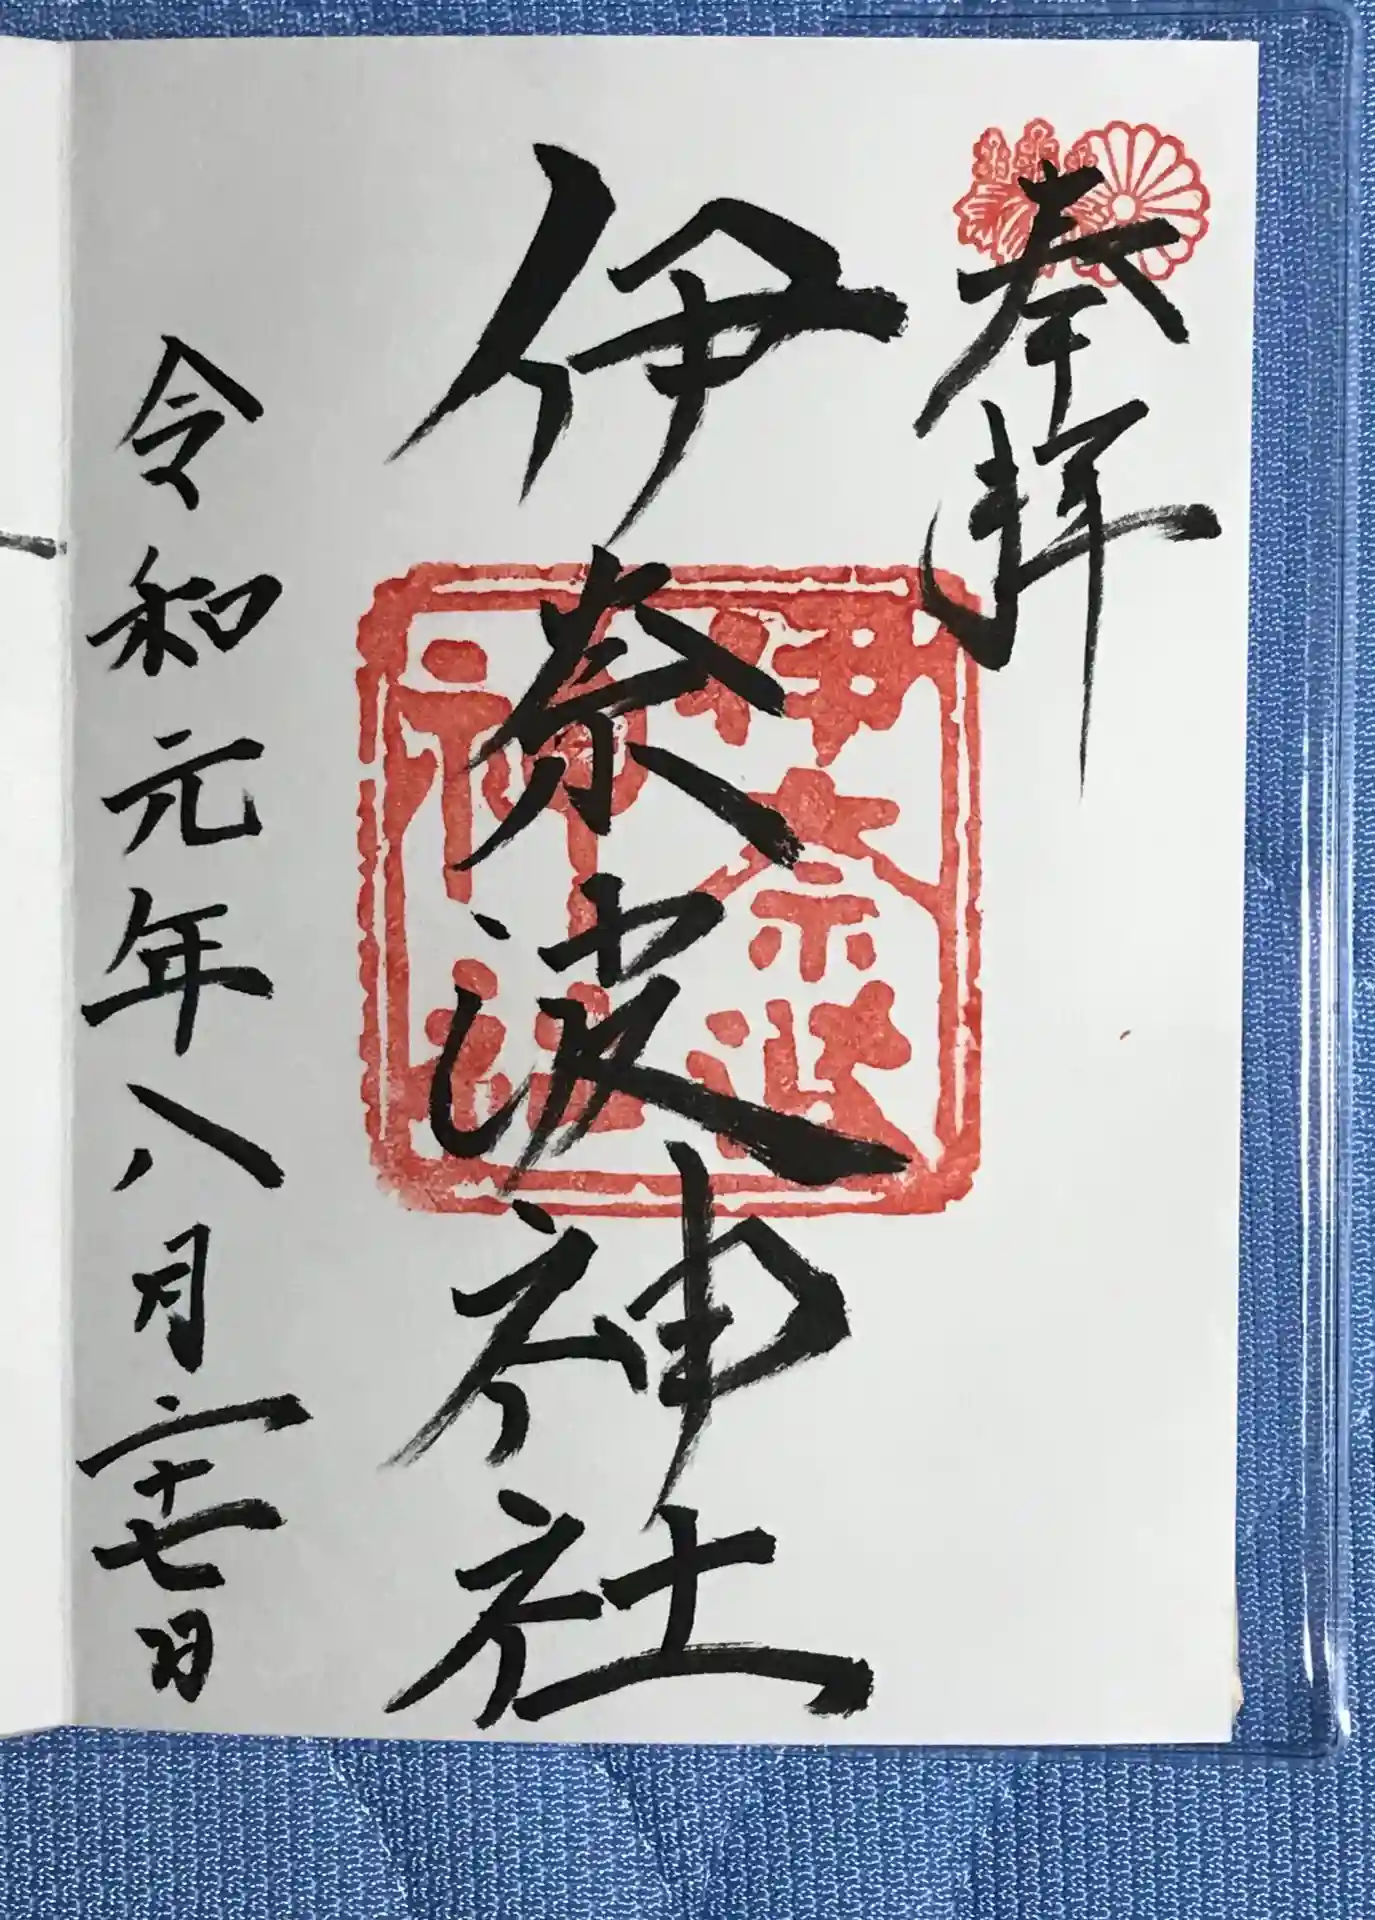 奉拝
伊奈波神社
伊奈波
神社
令和元年八月二十七日